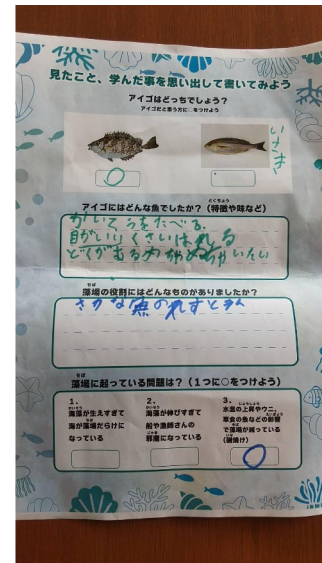 見たこと、学んだ事を思い出して書いてみよう
アイゴはどっちでしょう？
アイゴだと思う方に○をつけよう
いさき
○
アイゴにはどんな魚でしたか？（特徴や味など）
かいそうをたべる
目がいい くさいはれる
どくがある
いたい
藻場の役割にはどんなものがありましたか？
さかな魚のれすとらん
藻場に起っている問題は？（１つに○をつけよう）
1.
海藻が生えすぎて
海が藻場だらけに
なっている
2.
海藻が伸びすぎて
船や漁師さんの
邪魔になっている
3.
水温の上昇やウニ、
草食の魚などの影響
で藻場が減っている
（磯焼け）
○